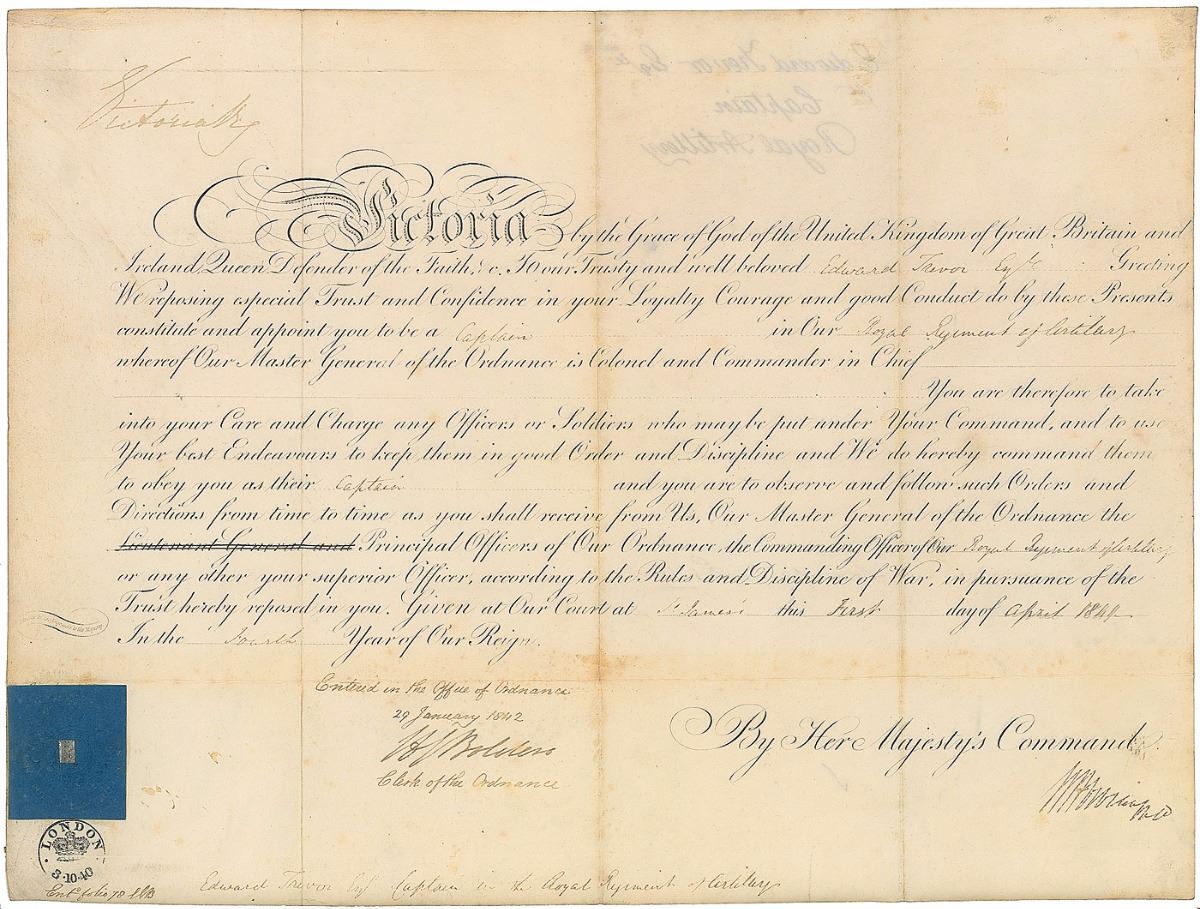 Victoria R
Victoria by the Grace of God of the United Kingdom of Great Britain and
Ireland, Queen, Defender of the Faith, &c. To our Trusty and well beloved Edward Trevor Esqre Greeting
We reposing especial Trust and Confidence in your Loyalty Courage and good Conduct do by these Presents
constitute and appoint you to be a Captain in Our Royal Regiment of Artillery
whereof Our Master General of the Ordnance is Colonel and Commander in Chief
You are therefore to take
into your Care and Charge any Officers or Soldiers who may be put under Your Command, and to use
Your best Endeavours to keep them in good Order and Discipline and We do hereby command them
to obey you as their Captain and you are to observe and follow such Orders and
Directions from time to time as you shall receive from Us, Our Master General of the Ordnance the
Lieutenant General and Principal Officers of Our Ordnance, the Commanding Officer of Our Royal Regiment of Artillery
or any other your superior Officer, according to the Rules and Discipline of War, in pursuance of the
Trust hereby reposed in you. Given at Our Court at St James's this First day of April 1841
In the Fourth Year of Our Reign.
Entered in the Office of Ordnance
29 January 1842
Clerk of the Ordnance
By Her Majesty's Command
LONDON
3·10·40
Entd folio 78
Edward Trevor Esqr Captain in the Royal Regiment of Artillery
Edward Trevor Esqre
Captain
Royal Artillery